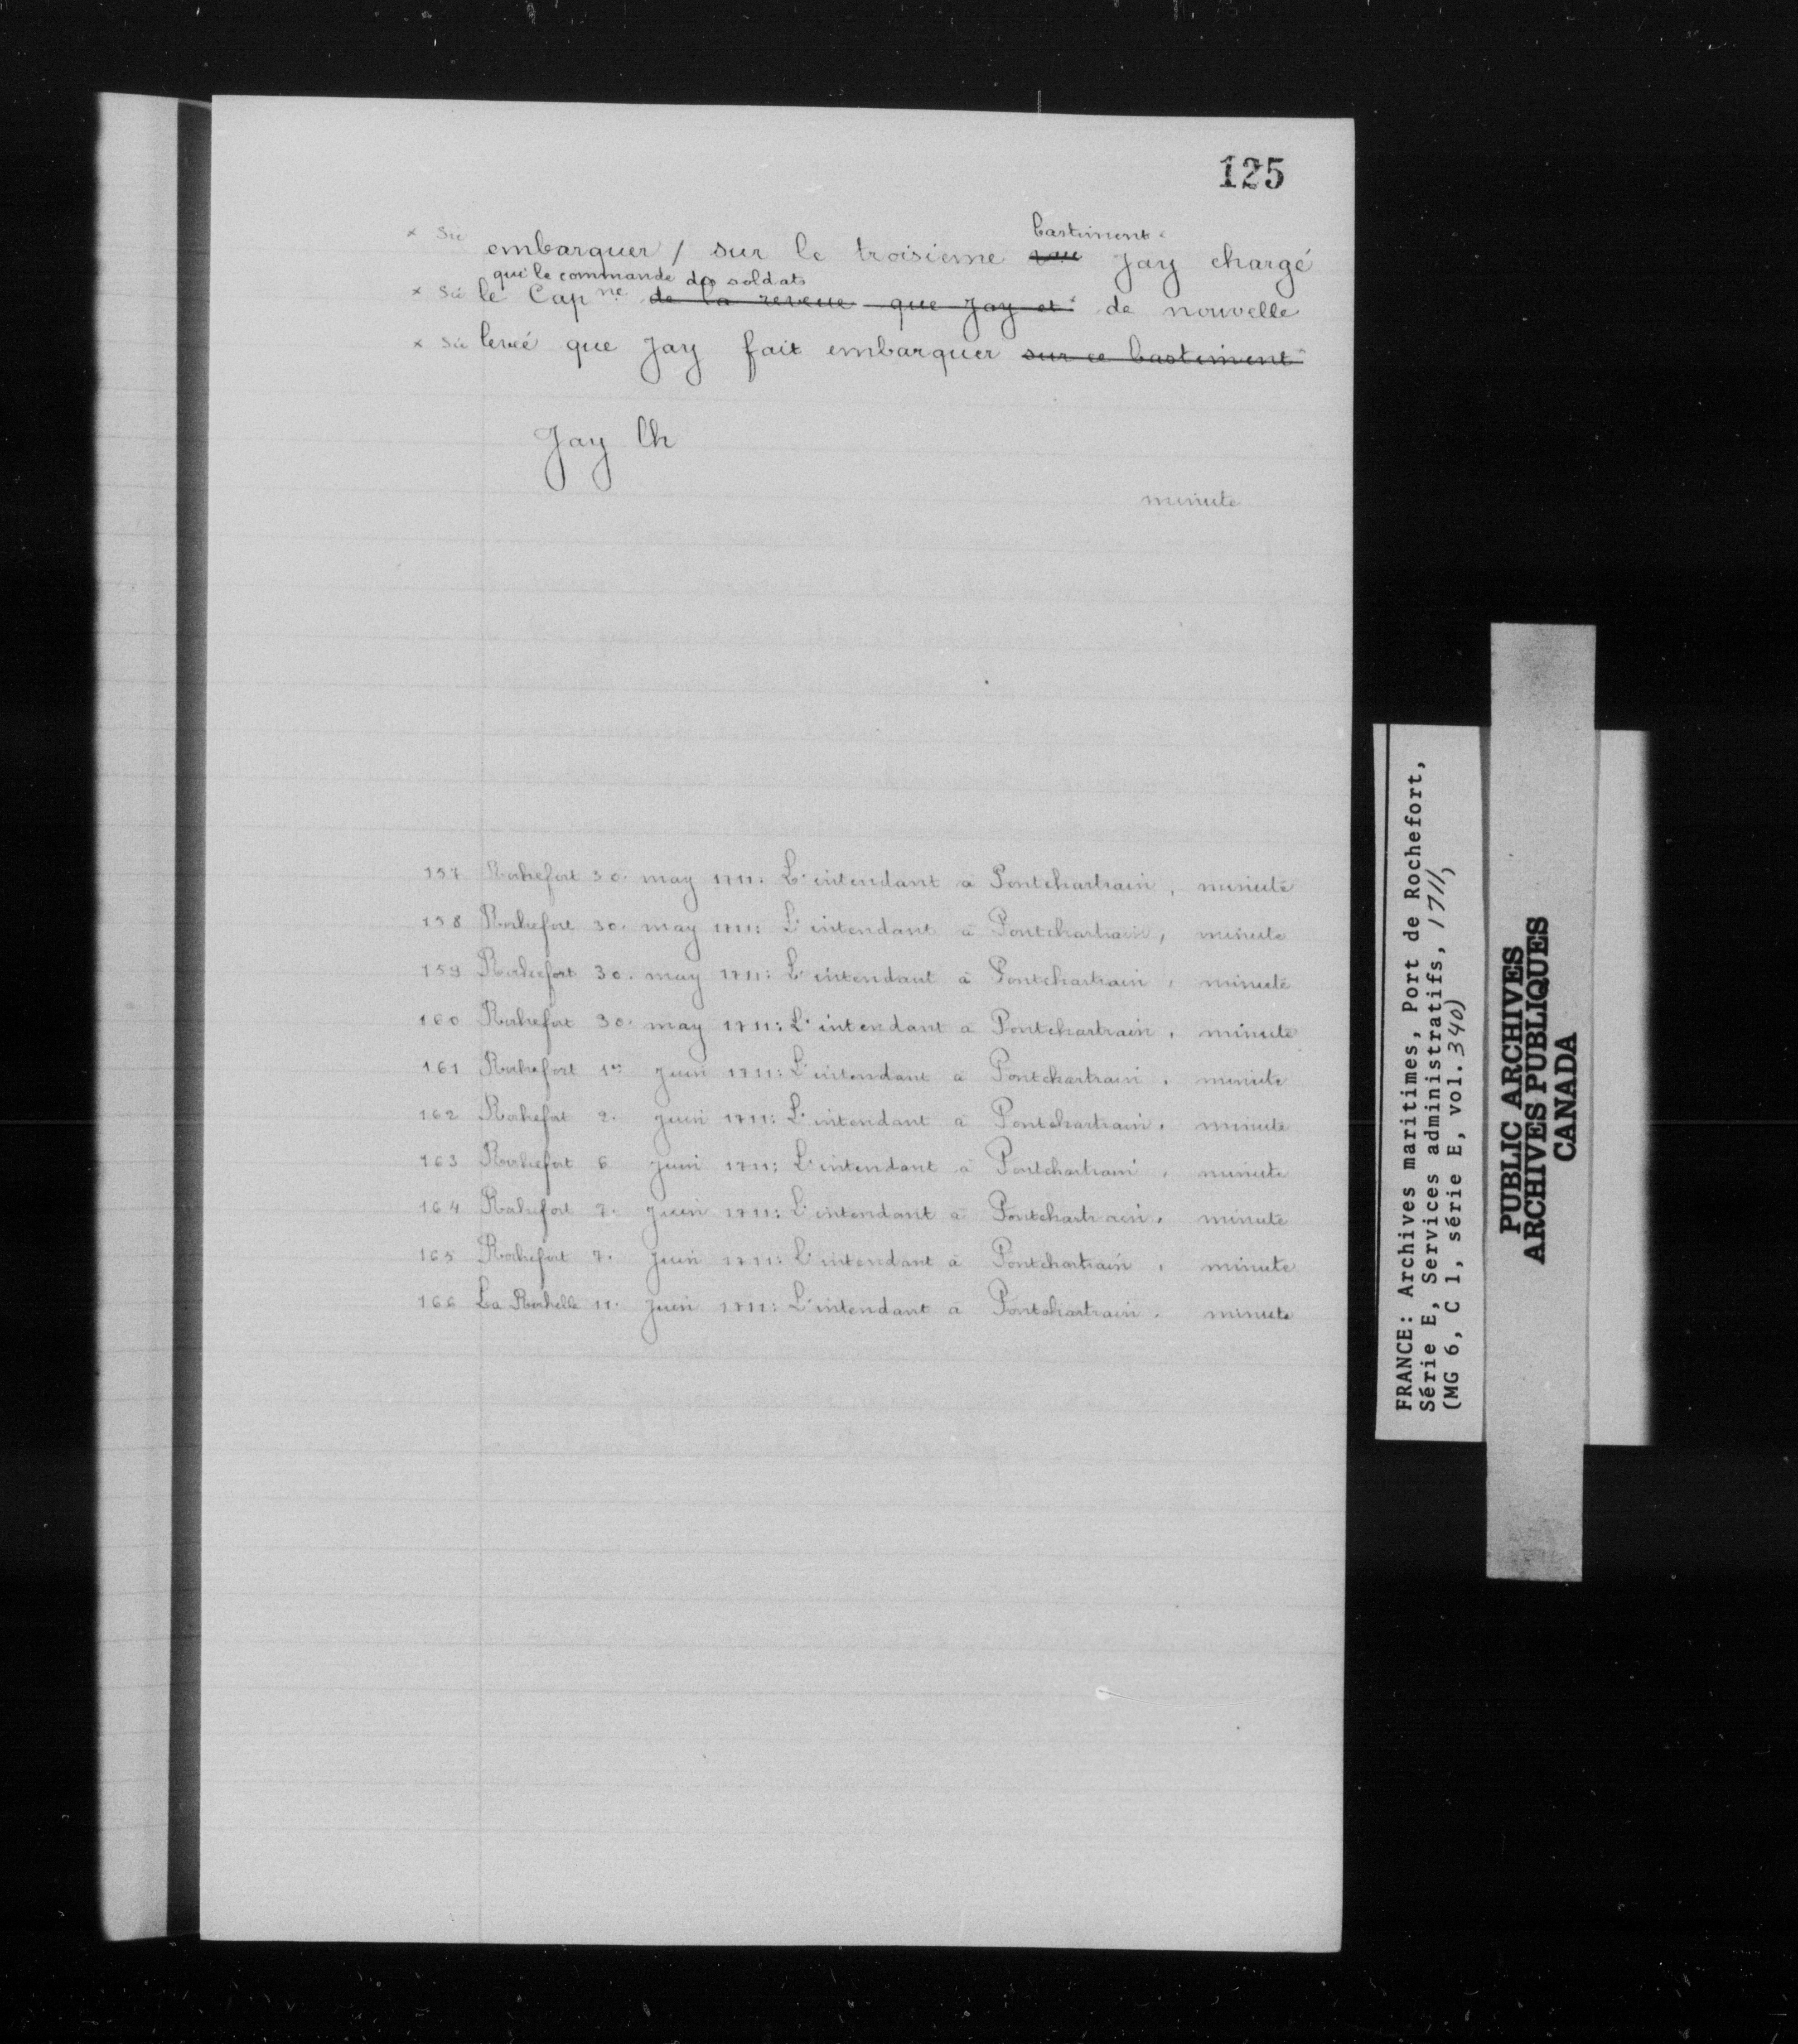 125
bastiment
x sic embarquer / sur le troisieme Jay chargé
qui le commande des soldats
x sic le Cap ne de la reveue que Jay et de nouvelle
x sic levée que Jay fait embarquer sur ce bastiment
Jay lh
minute
157 Rochefort 30. may 1711: L'intendant à Pontchartrain, minute
158 Rochefort 30. may 1711: L'intendant à Pontchartrain, minute
159 Rochefort 30. may 1711: L'intendant à Pontchartrain, minute
160 Rochefort 30. may 1711: L'intendant à Pontchartrain, minute
161 Rochefort 1er juin 1711: L'intendant à Pontchartrain, minute
162 Rochefort 2. juin 1711: L'intendant à Pontchartrain, minute
163 Rochefort 6 juin 1711: L'intendant à Pontchartrain, minute
164 Rochefort 7. juin 1711: L'intendant à Pontchartrain, minute
165 Rochefort 7. juin 1711: L'intendant à Pontchartrain, minute
166 La Rochelle 11. juin 1711: L'intendant à Pontchartrain, minute
FRANCE: Archives maritimes, Port de Rochefort,
Série E, Services administratifs, 1711,
(MG 6, C 1, série E, vol. 340)
PUBLIC ARCHIVES
ARCHIVES PUBLIQUES
CANADA